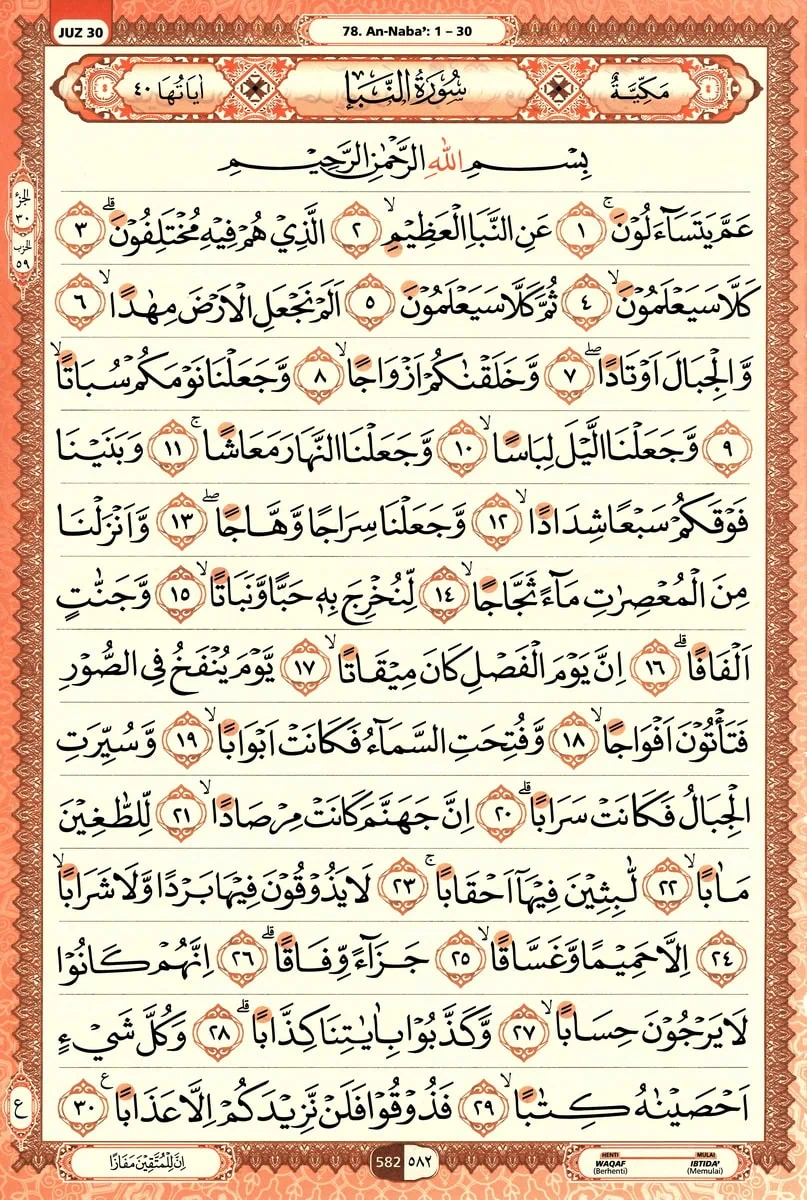 JUZ 30
78. An-Naba’: 1 – 30
مَكِّيَّةٌ سُوْرَةُ النَّبَاِ اٰيَاتُهَا ٤٠
بِسْمِ اللّٰهِ الرَّحْمٰنِ الرَّحِيْمِ
عَمَّ يَتَسَاۤءَلُوْنَۚ ١ عَنِ النَّبَاِ الْعَظِيْمِۙ ٢ الَّذِيْ هُمْ فِيْهِ مُخْتَلِفُوْنَۗ ٣
كَلَّا سَيَعْلَمُوْنَۙ ٤ ثُمَّ كَلَّا سَيَعْلَمُوْنَ ٥ اَلَمْ نَجْعَلِ الْاَرْضَ مِهٰدًاۙ ٦
وَّالْجِبَالَ اَوْتَادًاۖ ٧ وَّخَلَقْنٰكُمْ اَزْوَاجًاۙ ٨ وَّجَعَلْنَا نَوْمَكُمْ سُبَاتًاۙ
٩ وَّجَعَلْنَا الَّيْلَ لِبَاسًاۙ ١٠ وَّجَعَلْنَا النَّهَارَ مَعَاشًاۚ ١١ وَبَنَيْنَا
فَوْقَكُمْ سَبْعًا شِدَادًاۙ ١٢ وَّجَعَلْنَا سِرَاجًا وَّهَّاجًاۖ ١٣ وَّاَنْزَلْنَا
مِنَ الْمُعْصِرٰتِ مَاۤءً ثَجَّاجًاۙ ١٤ لِّنُخْرِجَ بِهٖ حَبًّا وَّنَبَاتًاۙ ١٥ وَّجَنّٰتٍ
اَلْفَافًاۗ ١٦ اِنَّ يَوْمَ الْفَصْلِ كَانَ مِيْقَاتًاۙ ١٧ يَّوْمَ يُنْفَخُ فِى الصُّوْرِ
فَتَأْتُوْنَ اَفْوَاجًاۙ ١٨ وَّفُتِحَتِ السَّمَاۤءُ فَكَانَتْ اَبْوَابًاۙ ١٩ وَّسُيِّرَتِ
الْجِبَالُ فَكَانَتْ سَرَابًاۗ ٢٠ اِنَّ جَهَنَّمَ كَانَتْ مِرْصَادًاۙ ٢١ لِّلطّٰغِيْنَ
مَاٰبًاۙ ٢٢ لّٰبِثِيْنَ فِيْهَآ اَحْقَابًاۚ ٢٣ لَا يَذُوْقُوْنَ فِيْهَا بَرْدًا وَّلَا شَرَابًاۙ
٢٤ اِلَّا حَمِيْمًا وَّغَسَّاقًاۙ ٢٥ جَزَاۤءً وِّفَاقًاۗ ٢٦ اِنَّهُمْ كَانُوْا
لَا يَرْجُوْنَ حِسَابًاۙ ٢٧ وَّكَذَّبُوْا بِاٰيٰتِنَا كِذَّابًاۗ ٢٨ وَكُلَّ شَيْءٍ
اَحْصَيْنٰهُ كِتٰبًاۙ ٢٩ فَذُوْقُوْا فَلَنْ نَّزِيْدَكُمْ اِلَّا عَذَابًا ࣖ ٣٠
الجزء
٣٠
الحزب
٥٩
ع
اِنَّ لِلْمُتَّقِيْنَ مَفَازًا
582 ٥٨٢
HENTI
WAQAF
(Berhenti)
MULAI
IBTIDA’
(Memulai)